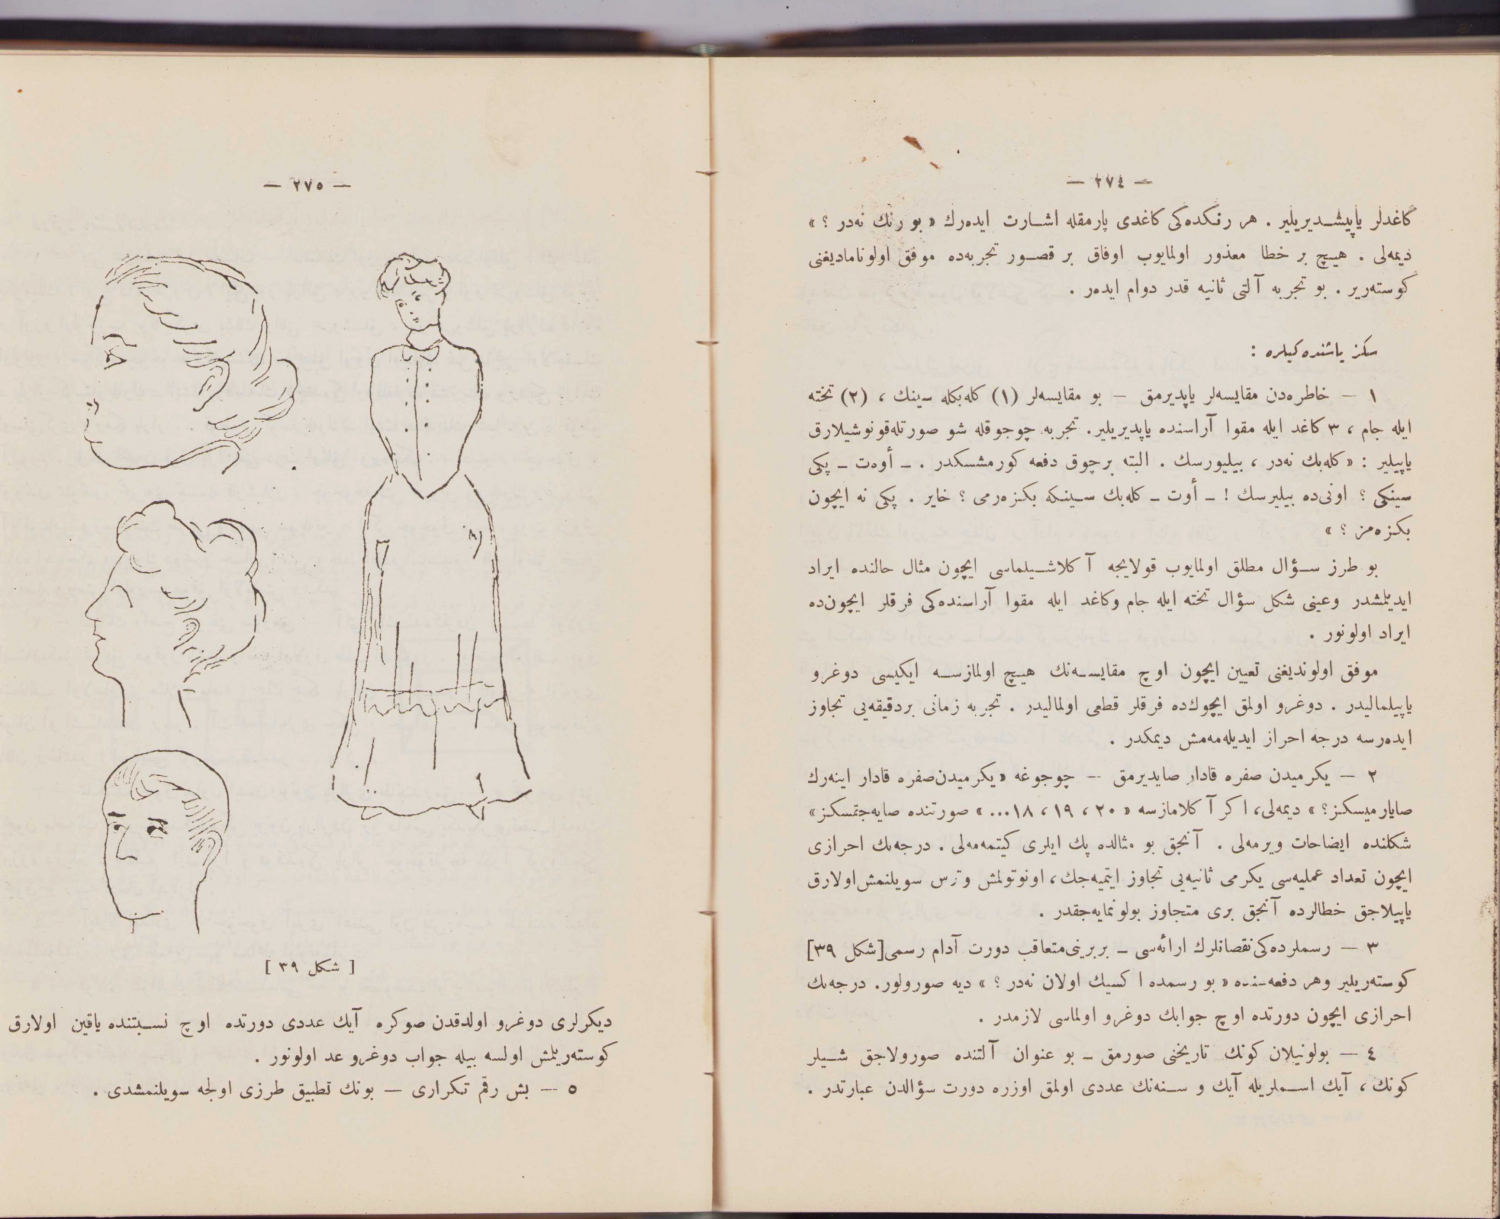 — ٢٧٤ —
كاغدلر ياپيشديريلير . هر رنكده‌كى كاغدى پارمقله اشارت ايده‌رك « بو رنك نه‌در ؟ »
ديمه‌لى . هيچ بر خطا معذور اولمايوب اوفاق بر قصور تجربه‌ده موفق اولوناماديغنى
كوسته‌رير . بو تجربه آلتى ثانيه قدر دوام ايده‌ر .
سكز ياشنده‌كيلره :
١ — خاطره‌دن مقايسه‌لر ياپديرمق — بو مقايسه‌لر (١) كله‌بكله سينك ، (٢) تخته
ايله جام ، ٣ كاغد ايله مقوا آراسنده ياپديريلير. تجربه چوجوقله شو صورتله‌قونوشيلارق
ياپيلير : « كله‌بك نه‌در ، بيليورسك . البته برچوق دفعه كورمشسكدر . ـ أوه‌ت ـ پكى
سينكى ؟ اونى‌ده بيليرسك ! ـ أوت ـ كله‌بك سينكه بكزه‌رمى ؟ خاير . پكى نه ايچون
بكزه‌مز ؟ »
بو طرز سؤال مطلق اولمايوب قولايجه آكلاشيلماسى ايچون مثال حالنده ايراد
ايديلمشدر وعينى شكل سؤال تخته ايله جام وكاغد ايله مقوا آراسنده‌كى فرقلر ايچون‌ده
ايراد اولونور .
موفق اولونديغنى تعيين ايچون اوچ مقايسه‌نك هيچ اولمازسه ايكيسى دوغرو
ياپيلماليدر . دوغرو اولمق ايچوك‌ده فرقلر قطعى اولماليدر . تجربه زمانى بردقيقه‌يى تجاوز
ايده‌رسه درجه احراز ايديله‌مه‌مش ديمكدر .
٢ — يكرميدن صفره قادار صايديرمق — چوجوغه « يكرميدن‌صفره قادار اينه‌رك
صايارميسكز؟ » ديمه‌لى، اكر آكلامازسه « ٢٠ ، ١٩ ، ١٨... » صورتنده صايه‌جقسكز»
شكلنده ايضاحات ويرمه‌لى . آنجق بو مثالده پك ايلرى كيتمه‌مه‌لى . درجه‌نك احرازى
ايچون تعداد عمليه‌سى يكرمى ثانيه‌يى تجاوز ايتميه‌جك، اونوتولمش وترس سويلنمش‌اولارق
ياپيلاجق خطالرده آنجق برى متجاوز بولونمايه‌جقدر .
٣ — رسملرده‌كى‌نقصانلرك ارائه‌سى ـ بربرينى‌متعاقب دورت آدام رسمى[شكل ٣٩]
كوسته‌ريلير وهر دفعه‌سنده « بو رسمده اكسيك اولان نه‌در ؟ » ديه صورولور. درجه‌نك
احرازى ايچون دورتده اوچ جوابك دوغرو اولماسى لازمدر .
٤ — بولونيلان كونك تاريخنى صورمق ـ بو عنوان آلتنده صورولاجق شيلر
كونك ، آيك اسملريله آيك و سنه‌نك عددى اولمق اوزره دورت سؤالدن عبارتدر .
— ٢٧٥ —
[ شكل ٣٩ ]
ديكرلرى دوغرو اولدقدن صوكره آيك عددى دورتده اوچ نسبتنده ياقين اولارق
كوسته‌ريلمش اولسه بيله جواب دوغرو عد اولونور .
٥ — بش رقم تكرارى — بونك تطبيق طرزى اولجه سويلنمشدى .